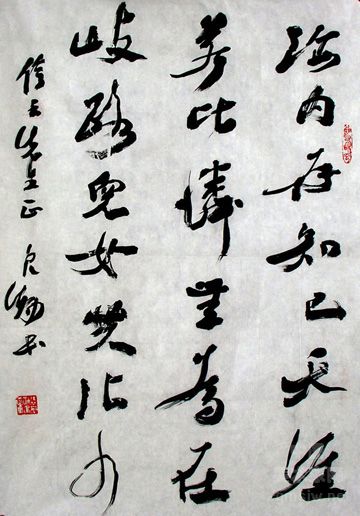 海内存知己天涯
若比邻无为在
歧路儿女共沾巾
先生正